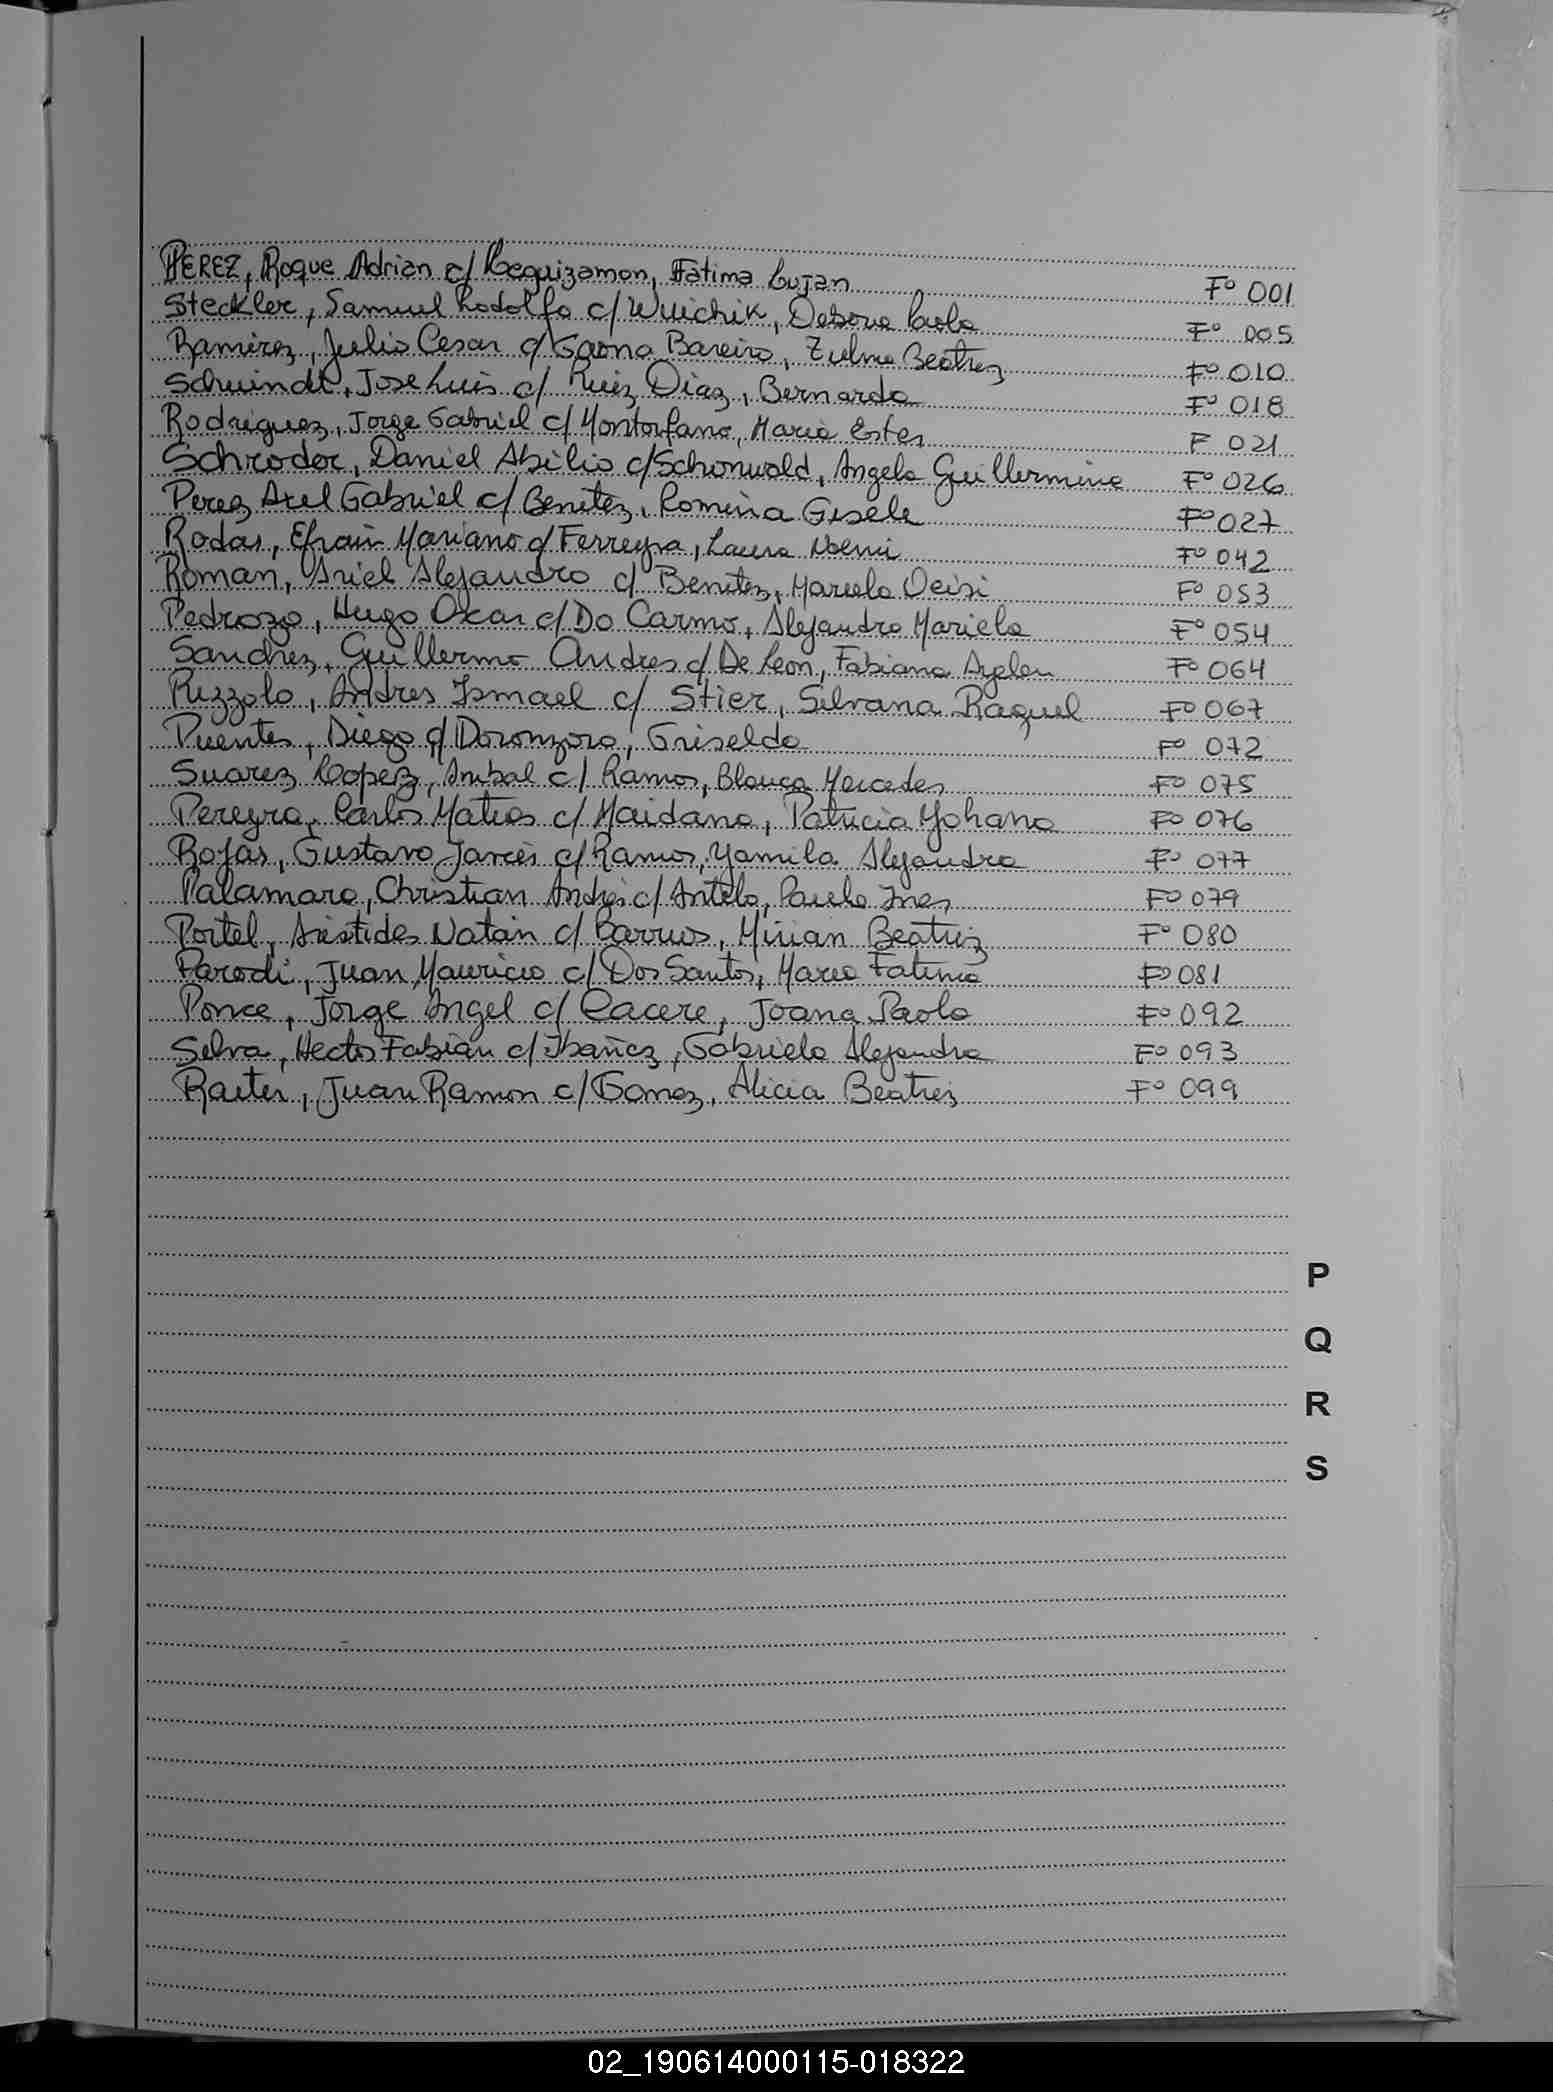 PEREZ, Roque Adrian c/ Leguizamon, Fatima Lujan F° 001
Steckler, Samuel Rodolfo c/ Wuichik, Debora Paola F° 005
Ramirez, Julio Cesar c/ Gaona Bareiro, Zulma Beatriz F° 010
Schwindt, Jose Luis c/ Ruiz Diaz, Bernarda F° 018
Rodriguez, Jorge Gabriel c/ Montorfano, Maria Ester F 021
Schroder, Daniel Abilio c/ Schonwald, Angela Guillermina F° 026
Perez Axel Gabriel c/ Benitez, Romina Gisele F° 027
Rodas, Efrain Mariano c/ Ferreyra, Laura Noemi F° 042
Roman, Ariel Alejandro c/ Benitez, Marcela Deisi F° 053
Pedrozo, Hugo Oscar c/ Do Carmo, Alejandra Mariela F° 054
Sanchez, Guillermo Andres c/ De Leon, Fabiana Ayelen F° 064
Rizzolo, Andres Ismael c/ Stier, Silvana Raquel F° 067
Puentes, Diego c/ Doronzoro, Griselda F° 072
Suarez Lopez, Anibal c/ Ramos, Blanca Mercedes F° 075
Pereyra, Carlos Matias c/ Maidana, Patricia Yohana F° 076
Rojas, Gustavo c/ Ramos, Yamila Alejandra F° 077
Palamaro, Christian Andrés c/ Antelo, Paula Ines F° 079
Portel, Aristides Natan c/ Barrios, Mirian Beatriz F° 080
Parodi, Juan Mauricio c/ Dos Santos, Maria Fatima F° 081
Ponce, Jorge Angel c/ Cacere, Joana Paola F° 092
Silva, Hector Fabián c/ Ibañez, Gabriela Alejandra F° 093
Raiter, Juan Ramon c/ Gomez, Alicia Beatriz F° 099
P
Q
R
S
02_190614000115-018322